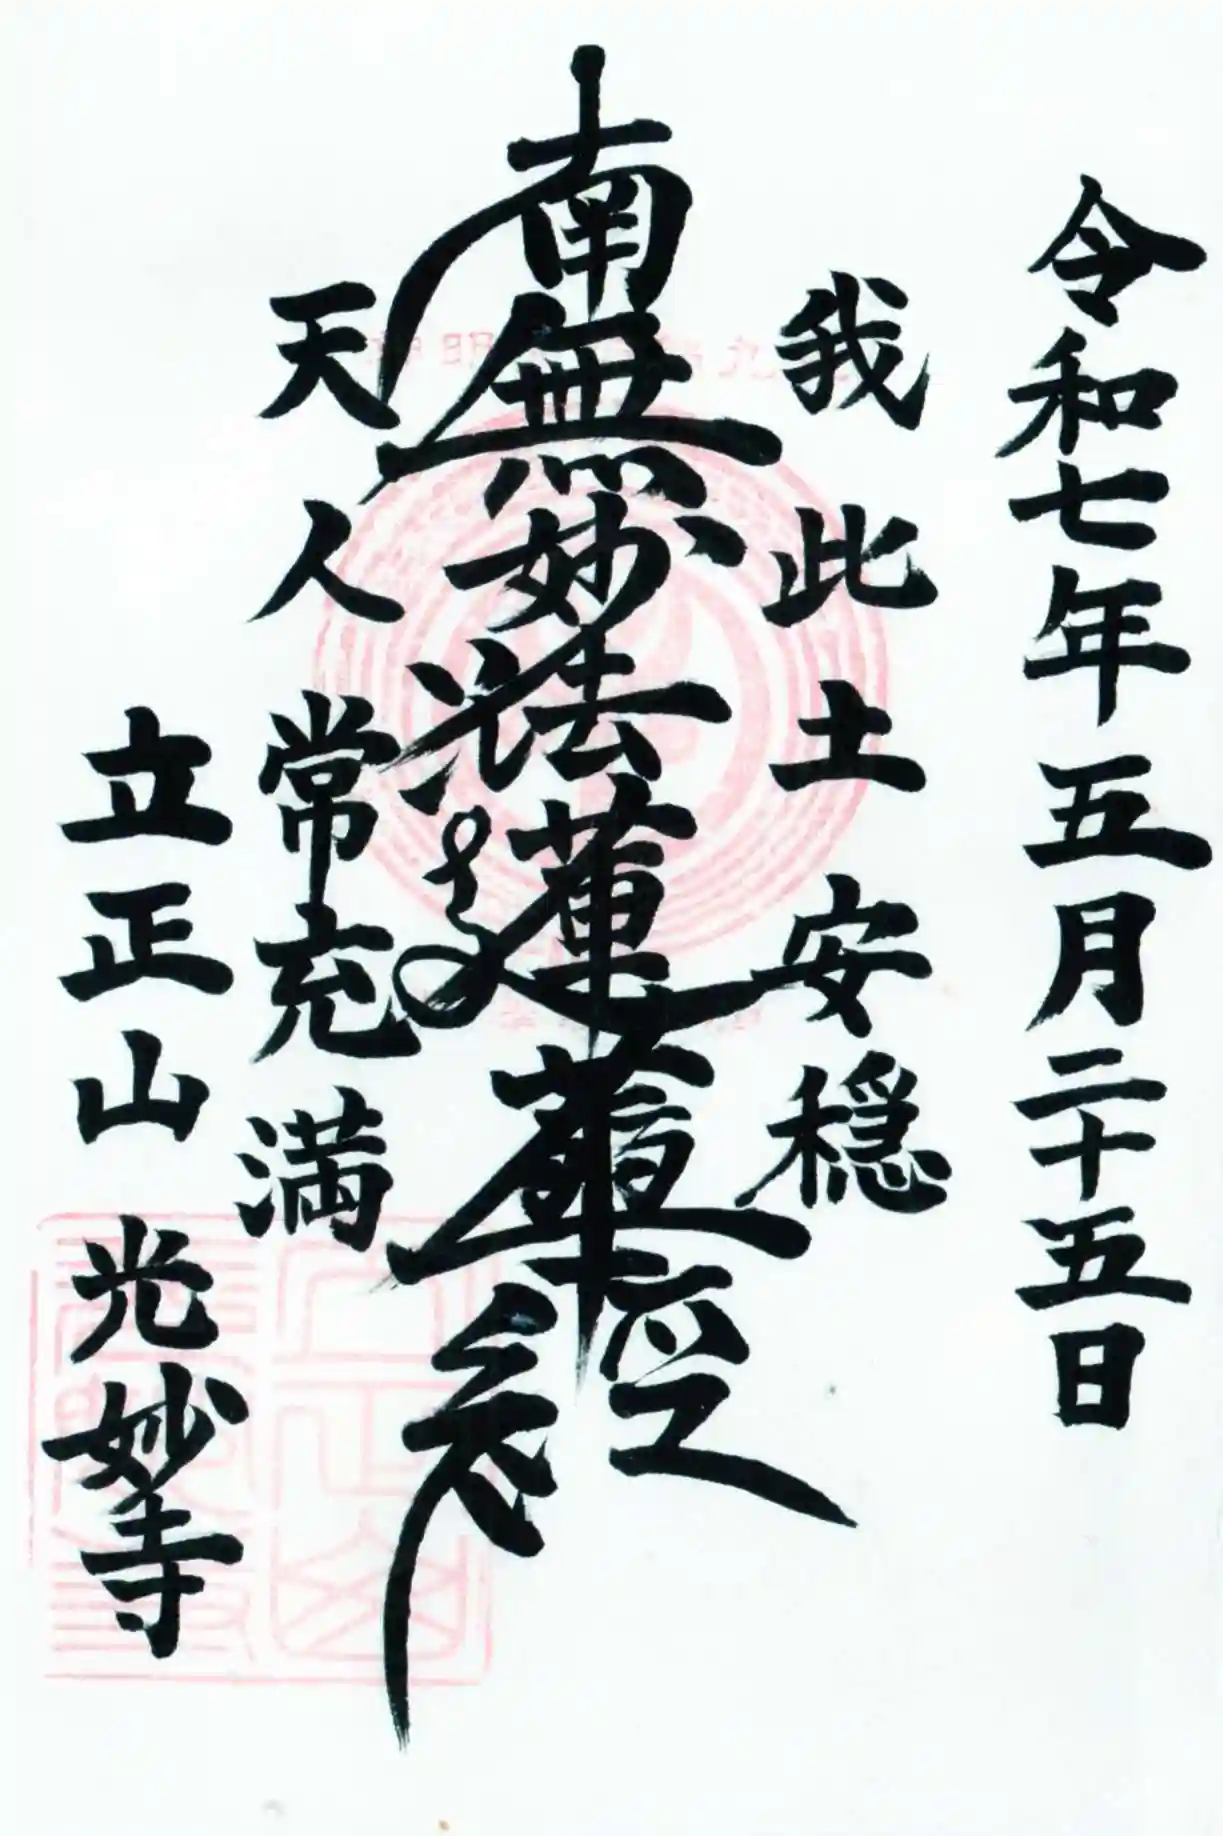 令和七年五月二十五日
我此土安穏
南無妙法蓮華經
天人常充満
立正山 光妙寺